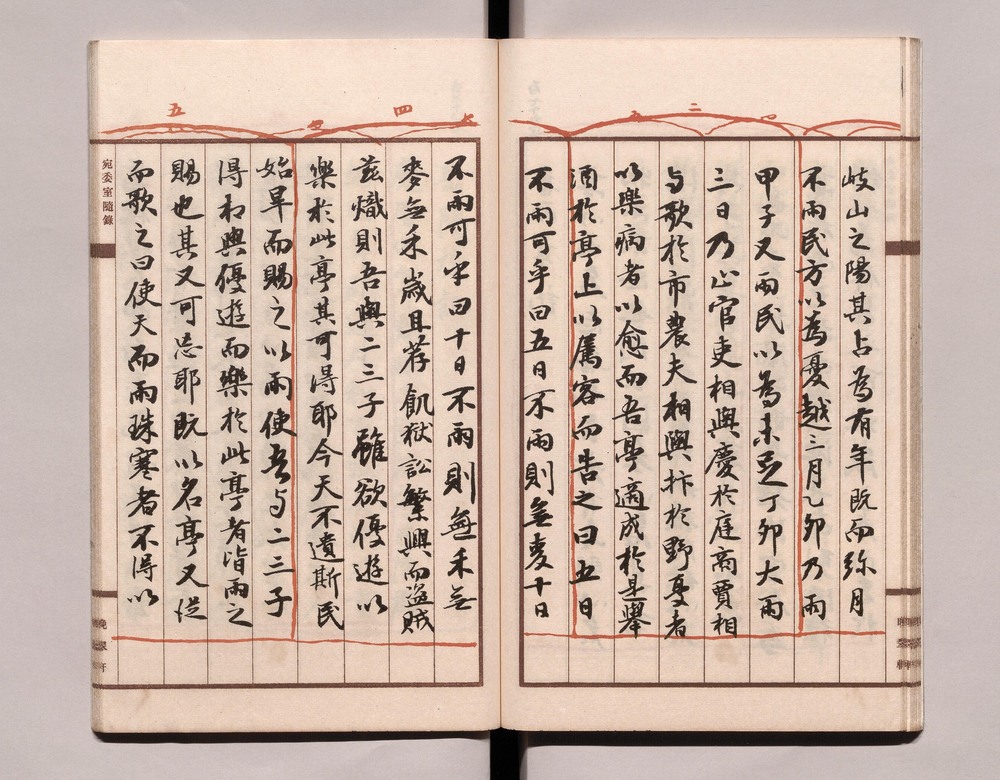 二
岐山之陽其占為有年既而弥月
不雨民方以為憂越三月乙卯乃雨
甲子又雨民以為未足丁卯大雨
三日乃止官吏相與慶於庭商賈相
与歌於市農夫相與抃於野憂者
以樂病者以愈而吾亭適成於是舉
酒於亭上以属客而告之曰五日
不雨可乎曰五日不雨則無麦十日
四
不雨可乎曰十日不雨則無禾無
麥無禾歲且荐飢獄訟繁興而盜賊
茲熾則吾與二三子雖欲優遊以
樂於此亭其可得耶今天不遺斯民
五
始旱而賜之以雨使吾与二三子
得相與優遊而樂於此亭者皆雨之
賜也其又可忘耶既以名亭又從
而歌之曰使天而雨珠寒者不得以
宛委室隨錄
晚翠軒